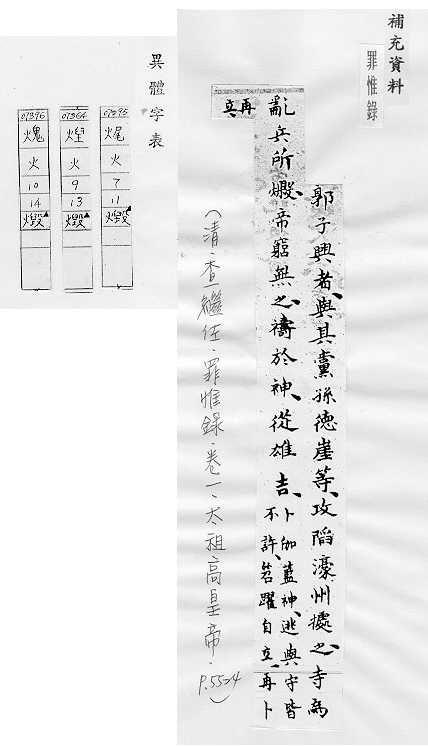 補充資料
罪惟錄
郭子興者、與其黨孫德崖等、攻陷濠州據之、寺為
亂兵所燬、帝窮無之、禱於神、從雄吉、
卜伽藍神、逃與守皆
不許、筶躍自立、再卜
再立
(清.查繼佐.罪惟錄.卷一.太祖高皇帝.
異體字表
07395
火
7
11
燬
07364
火
9
13
燬
07396
火
10
14
燬